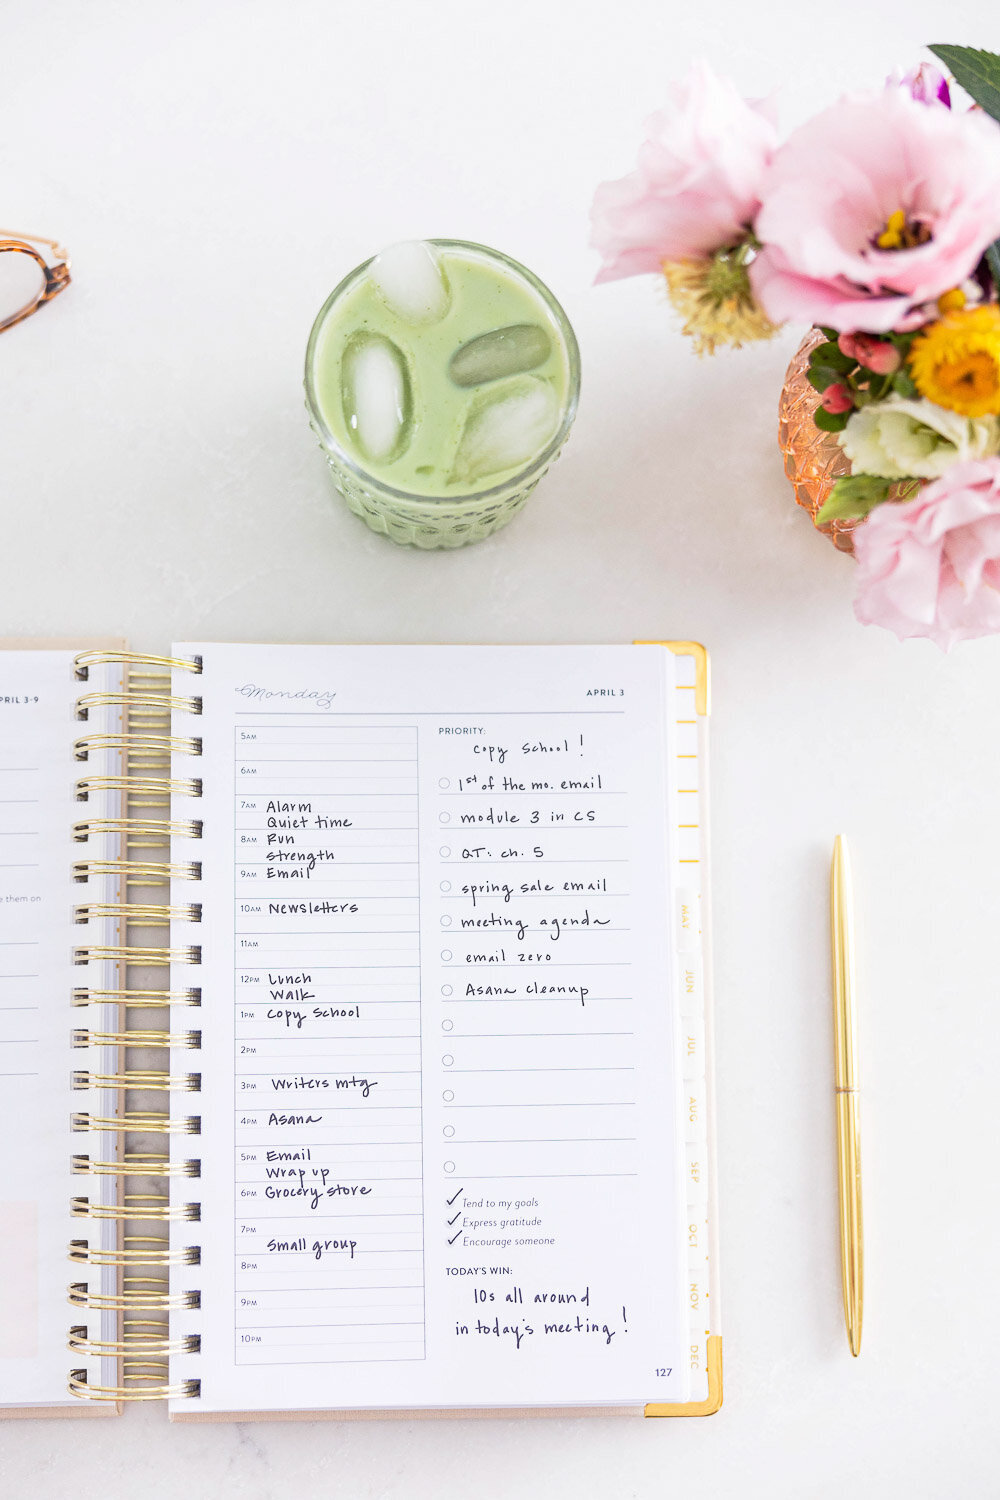 PRIL 3-9
e them on
Monday
APRIL 3
5AM
6AM
7AM Alarm
Quiet time
8AM Run
strength
9AM Email
10AM Newsletters
11AM
12PM Lunch
Walk
1PM Copy School
2PM
3PM Writers mtg
4PM Asana
5PM Email
Wrap up
6PM Grocery store
7PM
Small group
8PM
9PM
10PM
PRIORITY:
Copy School!
1st of the mo. email
module 3 in CS
QT: ch. 5
spring sale email
meeting agenda
email zero
Asana cleanup
Tend to my goals
Express gratitude
Encourage someone
TODAY'S WIN:
10s all around
in today's meeting!
127
MAY
JUN
JUL
AUG
SEP
OCT
NOV
DEC